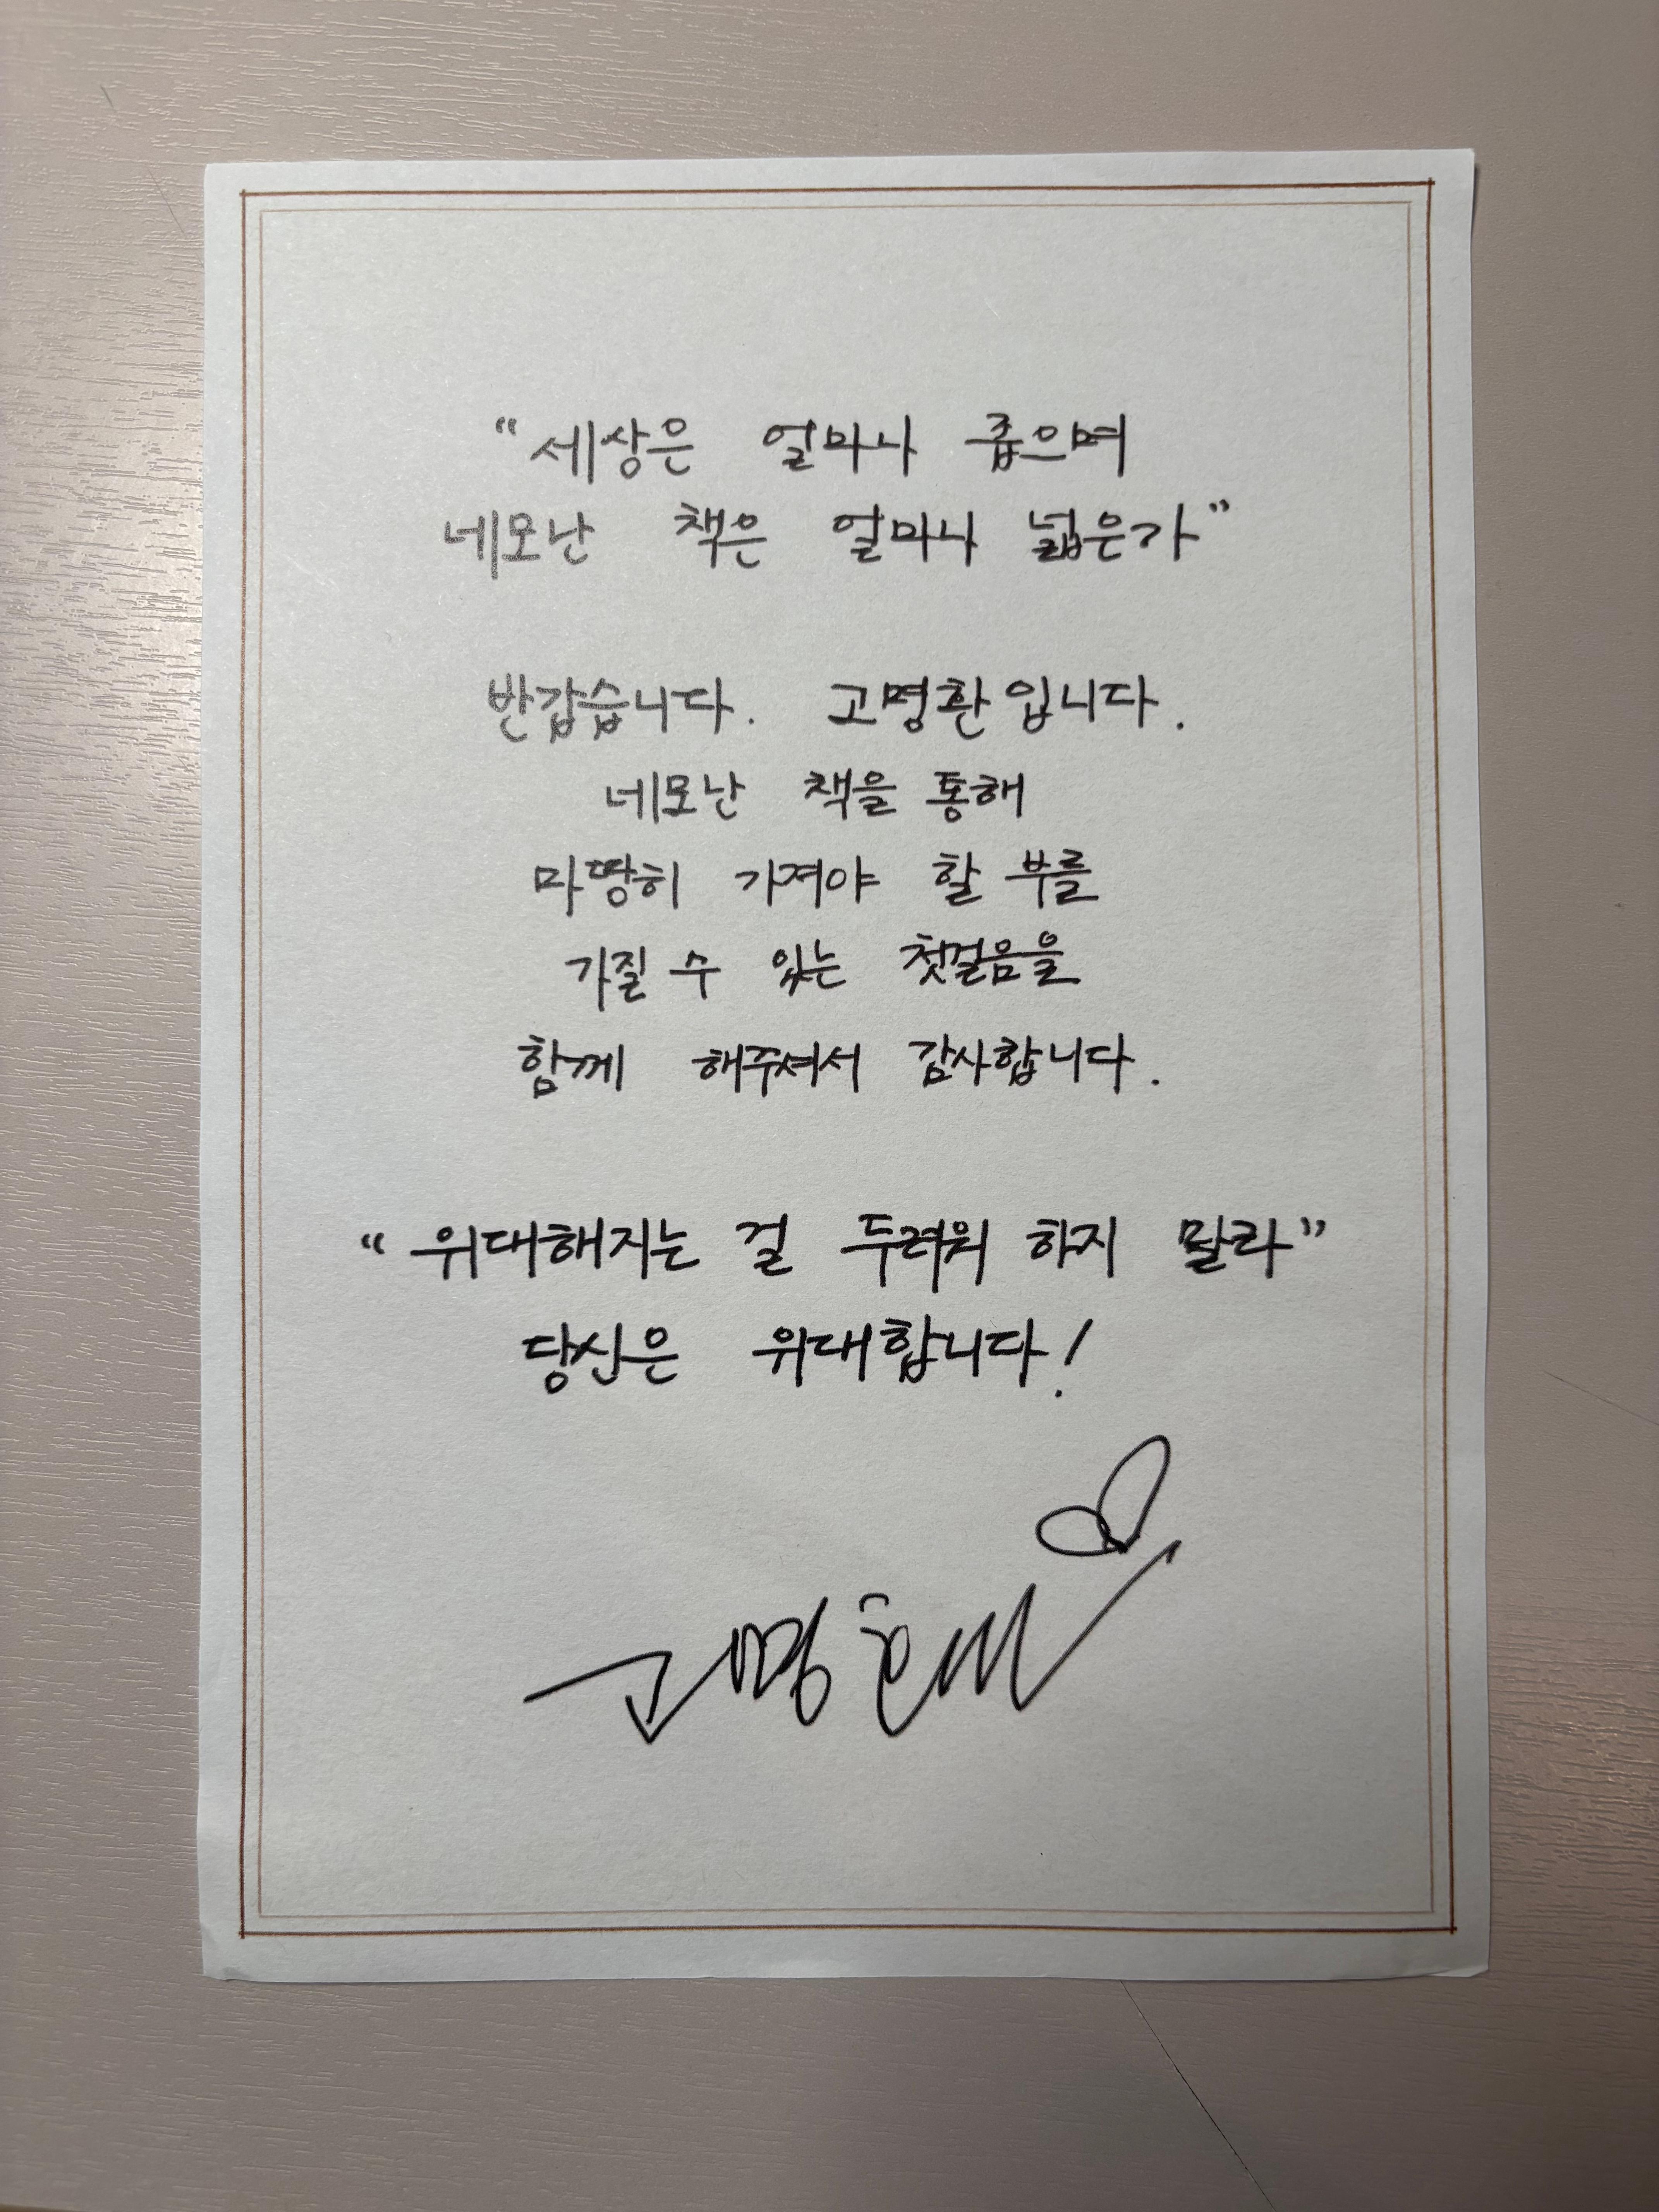 “세상은 얼마나 좁으며
네모난 책은 얼마나 넓은가”
반갑습니다. 고명환입니다.
네모난 책을 통해
마땅히 가져야 할 부를
가질 수 있는 첫걸음을
함께 해주셔서 감사합니다.
“위대해지는 걸 두려워 하지 말라”
당신은 위대합니다!
고명환